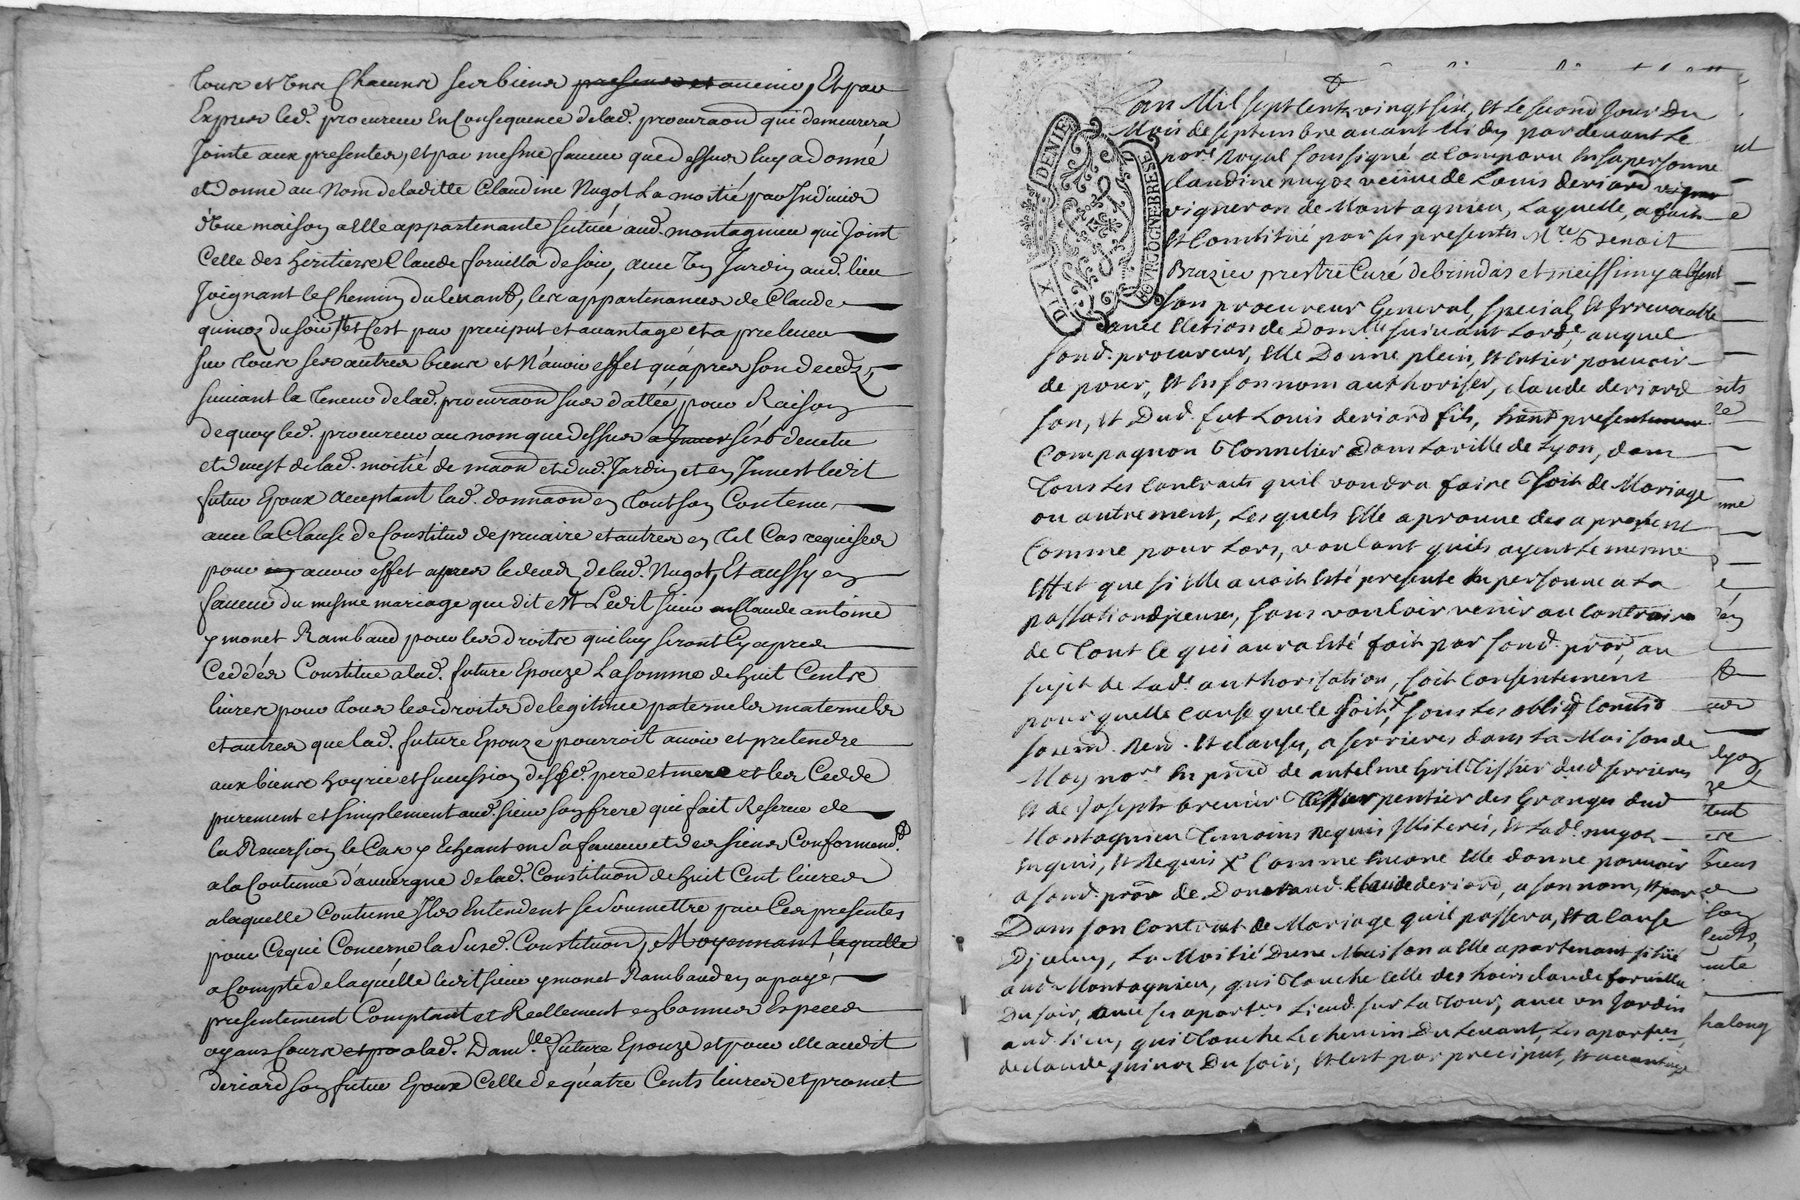 Tous et Uns Chacuns ses biens presens et avenir, Et par
Exprex led. procureur En Consequence de lad. procuraõn qui demeurera
Jointe aux presentes, et par mesme faveur que dessus luy a donné
et donne au Nom de laditte Claudine Nugoz La moitié par Indivis
d'Une maison a Elle appartenante scituée aud. montagnieu qui Joint
Celle des heritiers Claude forvilla de soir, avec Un Jardin aud. lieu
Joignant le Chemin du levant, les appartenances de Claude
quinoz du soir Et C'est par preciput et avantage et a prelever
sur Tous ses autres biens et N'avoir effet qu'apres son decedz,
suivant la Teneur de lad. procuraõn sus dattée, pour Raison
de quoy led. procureur au nom que dessus a s'est devetu
et devest de lad. moitié de maõn et dud. Jardin et en Invest ledit
futur Epoux acceptant lad. donnaõn en Tout son Contenu
avec la Clause de Constitut de precaire et autres en Tel Cas requises
pour avoir effet apres le deced de lad. Nugoz, Et aussy en
faveur du mesme mariage que dit est Ledit sieur Claude antoine
ymonet Rambaud pour les droits qui luy seront Cy apres
Ceddés Constitue a lad. future Epouze La somme de huit Cents
livres pour Tous les droits de legitime paternels maternels
et autres que lad. future Epouze pourroit avoir et pretendre
aux biens hoyrie et sucession desd. pere et mere et les Cedde
purement et simplement aud. sieur son frere qui fait Reserve de
la Reversion le Cas y Echeant en sa faveur et des siens Conformemt.
a la Coutume d'auvergne de lad. Constituõn de huit Cent livres
a laquelle Coutume Ils Entendent se soumettre par Ces presentes
pour Ce qui Concerne la susd. Constituõn, Moyennant laquelle
a Compte de laquelle ledit sieur ymonet Rambaud en a payé
presentement Comptant et Reellement en bonnes Especes
ayans Cours a lad. Damlle. future Epouze et pour elle audit
deriard son futur Epoux Celle de quatre Cents livres et promet
DIX DENIE
BOVRGOGNE BRESSE
L'an Mil sept Cents vingt six, Et Le second Jour Du
Mois de septembre avant Midy, par devant Le
nore. Royal soussigné a Comparu En sa personne
Claudine nugoz veüve de Louis deriard
vigneron de Montagnieu, Laquelle, a fait
Et Constitué par ses presentes Mre. Benoit
Brazier prestre Curé de brindas et meissimy absent
son procureur General, special, Et Irrevocable
avec Election de Domlle. suivant Lorde. auquel
sond. procureur, Elle Donne plein, Et Entier pouvoir
de pour, Et En son nom authoriser, claude deriard
son, Et Dud. fut Louis deriard fils, presentement
Compagnon Tonnelier Dans La ville de Lyon, dans
Tous Les Contracts quil voudra faire soit de Mariage
ou autrement, Lesquels Elle aprouve des a present
Comme pour Lors, voulant quils ayent Le mesme
Effet que si Elle avoit Esté presente En personne a La
passation d'Iceux, sans vouloir venir au Contraire
de Tout Ce qui aura Esté fait par sond. prõr, au
sujet de Lade. authorisation, soit Consentement
pour quelle Cause que Ce soit, sous Les oblig. Constit.
soumd. Rend. Et Clauses, a serrieres dans La Maison de
Moy nore. En prẽd de antelme Tissier dud serrieres
Et de Joseph brevier Charpentier des Granges dud
Montagnieu Temoins Requis Illiterés, Et Lade. nugoz
Enquis, Et Requis X Comme Encore Elle donne pouvoir
a sond. prõr de Donner aud Claude deriard, a son nom, Et par
Dans son Contract de Mariage quil passera, Et a Cause
D'Iceluy, La Moitié D'une Maison a Elle apartenant sitüé
aud Montagnieu, qui Touche Celle des hoirs claude forvilla
Du soir, avec ses apartces. Lieud. sur La Tour, avec un Jardin
aud. Lieu, qui Touche Le chemin Du Levant, Les apartces.
de claude quinoz Du soir, Et C'est par preciput, Et avantage